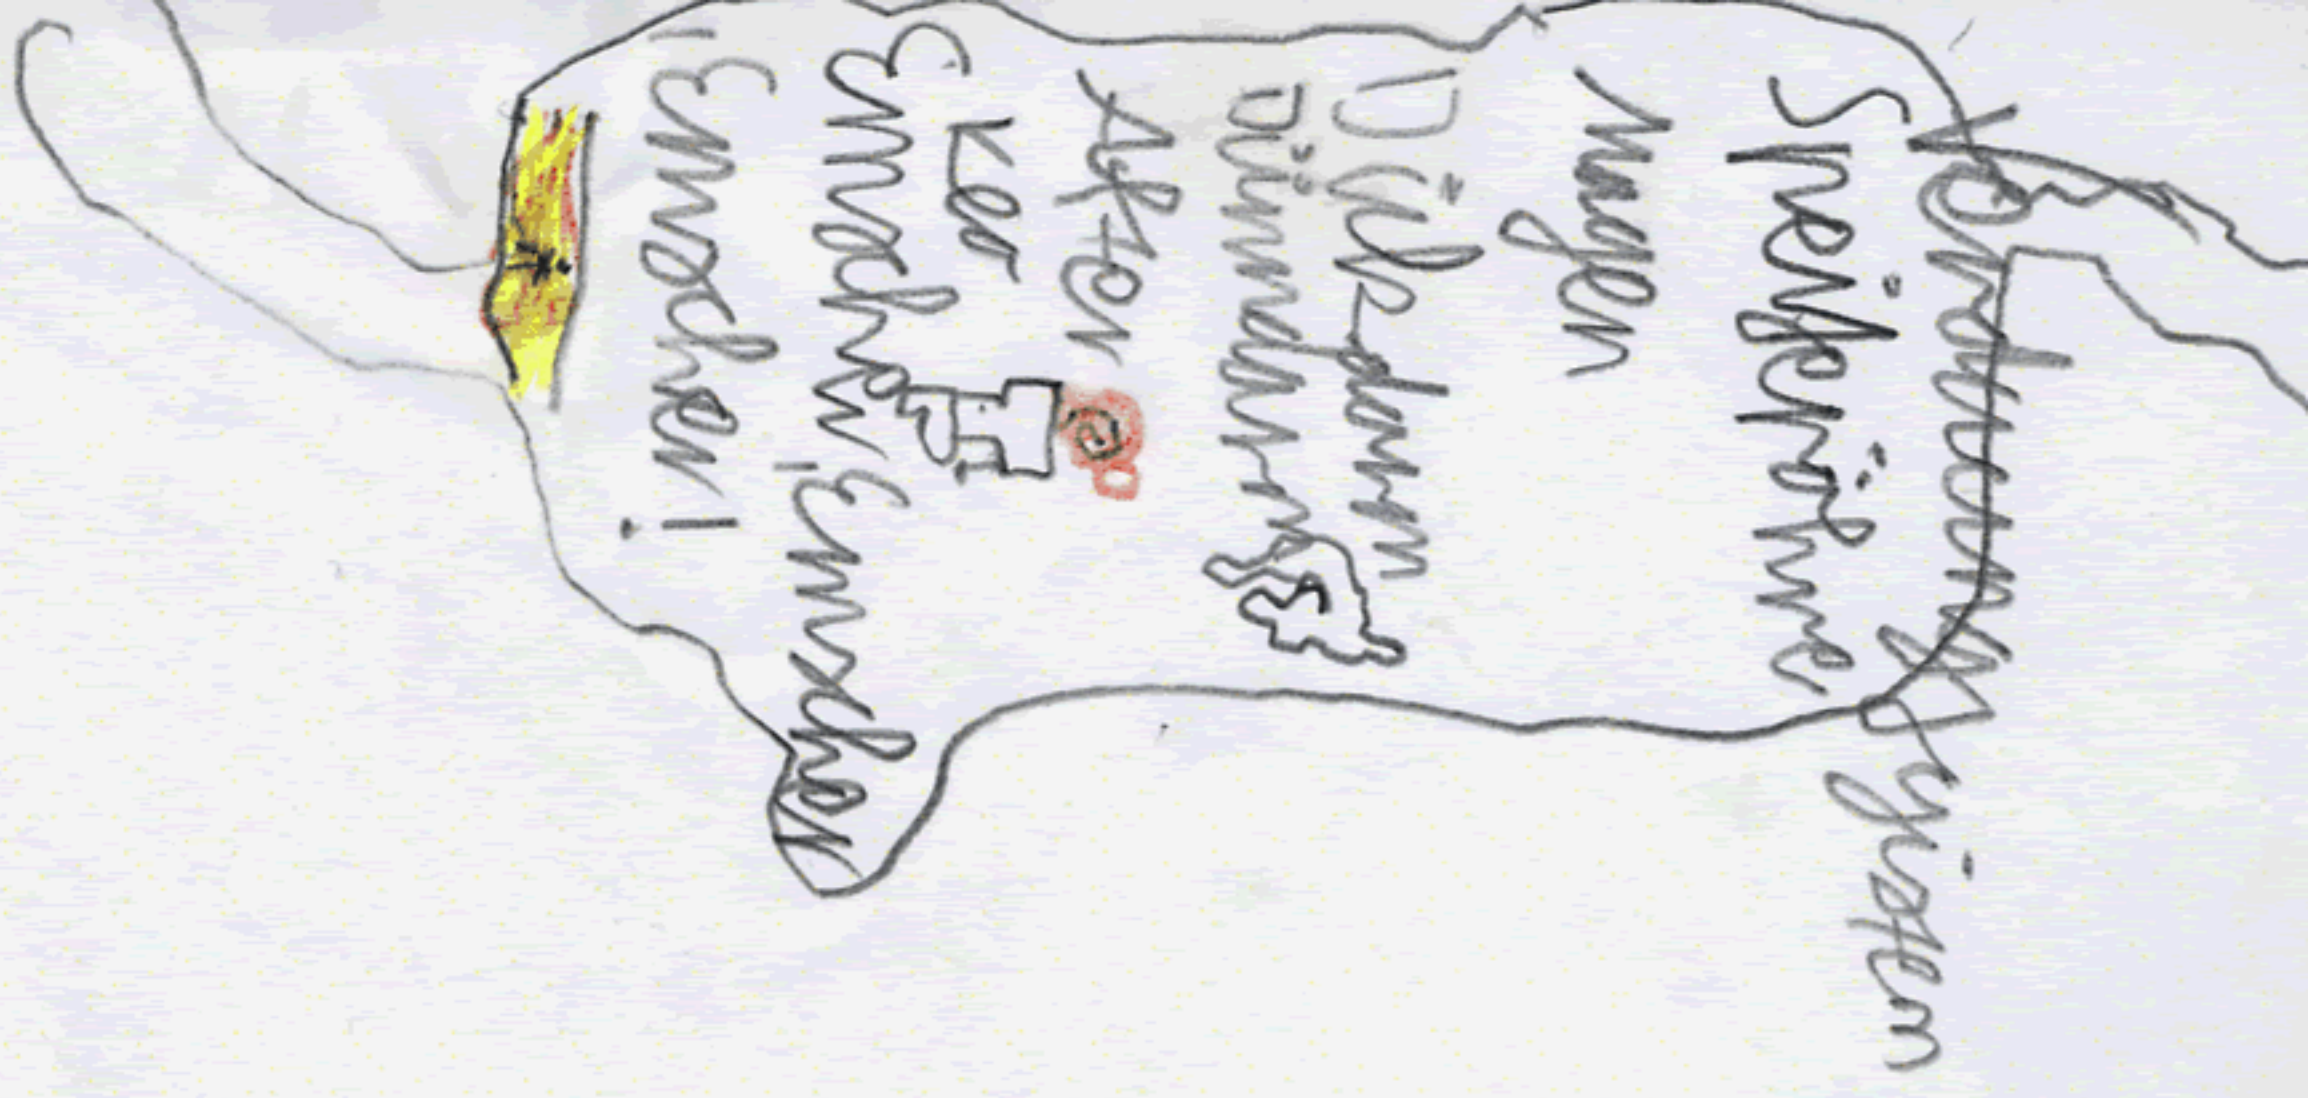 Verdauungssyistem
Speiseröhre
Magen
Dikdarm
Dünndarm
After
Klo
Emscher, Emscher
Emscher!